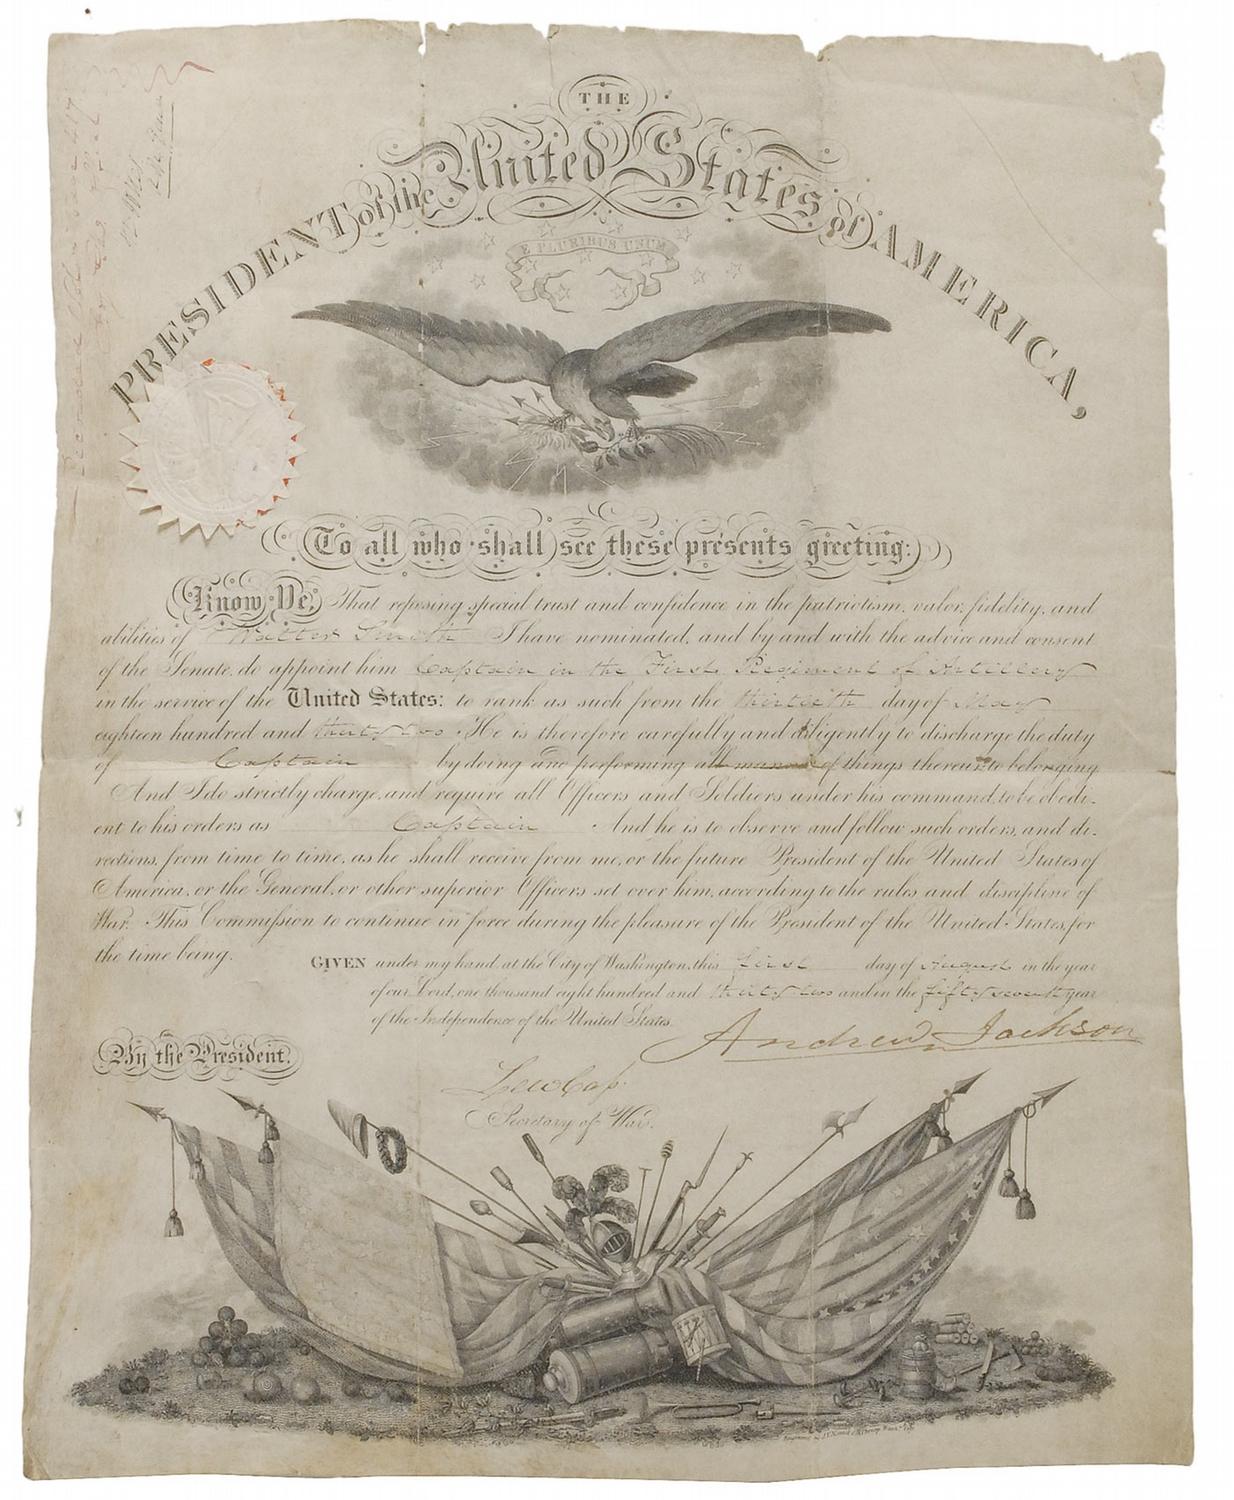 THE
PRESIDENT of the United States of AMERICA,
E PLURIBUS UNUM
To all who shall see these presents greeting:
Know Ye, That reposing special trust and confidence in the patriotism, valor, fidelity, and
abilities of Walter Smith I have nominated, and by and with the advice and consent
of the Senate, do appoint him Captain in the First Regiment of Artillery
in the service of the United States: to rank as such from the thirtieth day of May
eighteen hundred and thirty two. He is therefore carefully and diligently to discharge the duty
of Captain by doing and performing all manner of things thereunto belonging.
And I do strictly charge, and require all Officers and Soldiers under his command, to be obedi-
ent to his orders as Captain. And he is to observe and follow such orders, and di-
rections, from time to time, as he shall receive from me, or the future President of the United States of
America, or the General, or other superior Officers set over him, according to the rules and discipline of
War. This Commission to continue in force during the pleasure of the President of the United States, for
the time being.
GIVEN under my hand, at the City of Washington, this first day of August in the year
of our Lord, one thousand eight hundred and thirty two and in the fifty seventh year
of the Independence of the United States.
Andrew Jackson
By the President.
Lew Cass
Secretary of War.